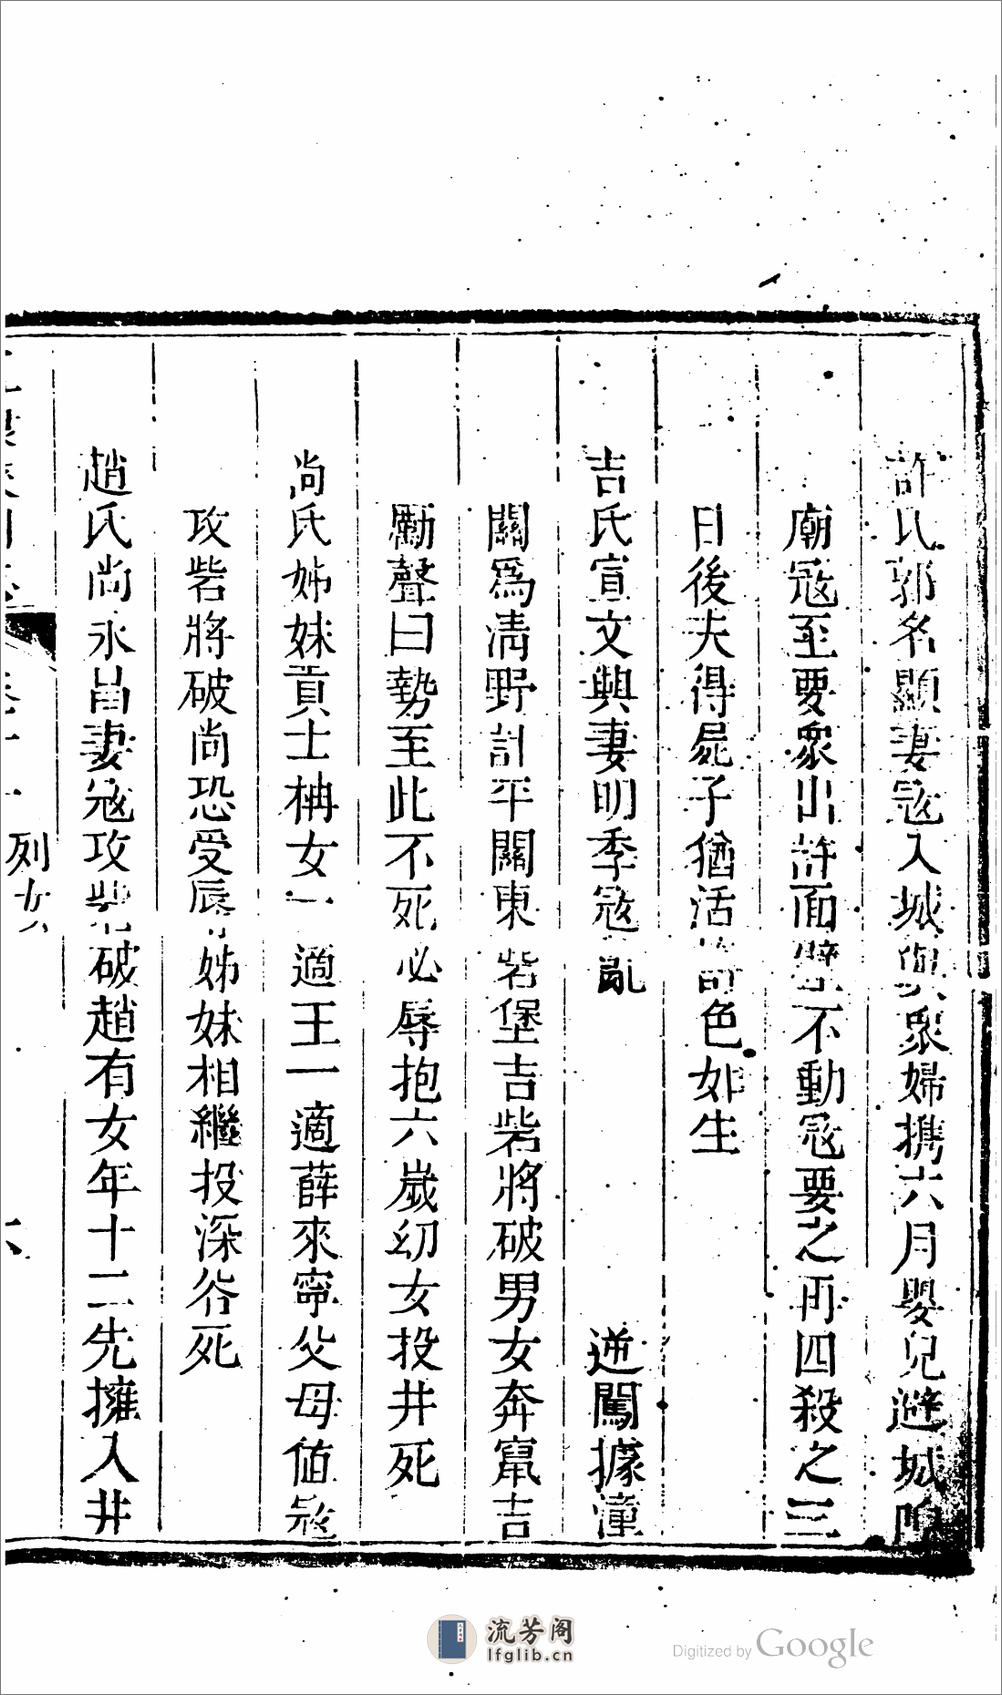 許氏郭名顯妻寇入城與衆婦携六月嬰兒避城隍
廟寇至要衆出許面壁不動寇要之再四殺之三
日後夫得屍子猶活顔色如生
吉氏宣文興妻明季寇亂 逆闖據潼
關爲清野計平關東砦堡吉砦將破男女奔竄吉
勵聲曰勢至此不死必辱抱六歲幼女投井死
尚氏姊妹貢士柟女一適王一適薛來寧父母值寇
攻砦將破尚恐受辱姊妹相繼投深谷死
趙氏尚永昌妻寇攻砦破趙有女年十二先擁入井
列女
六
流芳阁
lfglib.cn
Digitized by Google